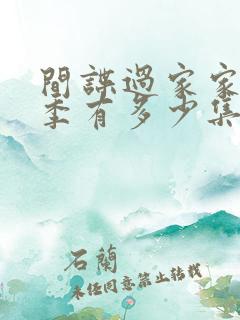 間諜過家家
季有多少集
石蘭
未经同意禁止转载